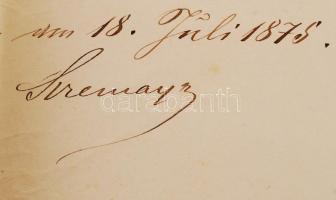 am 18. Juli 1875.
Stremayr